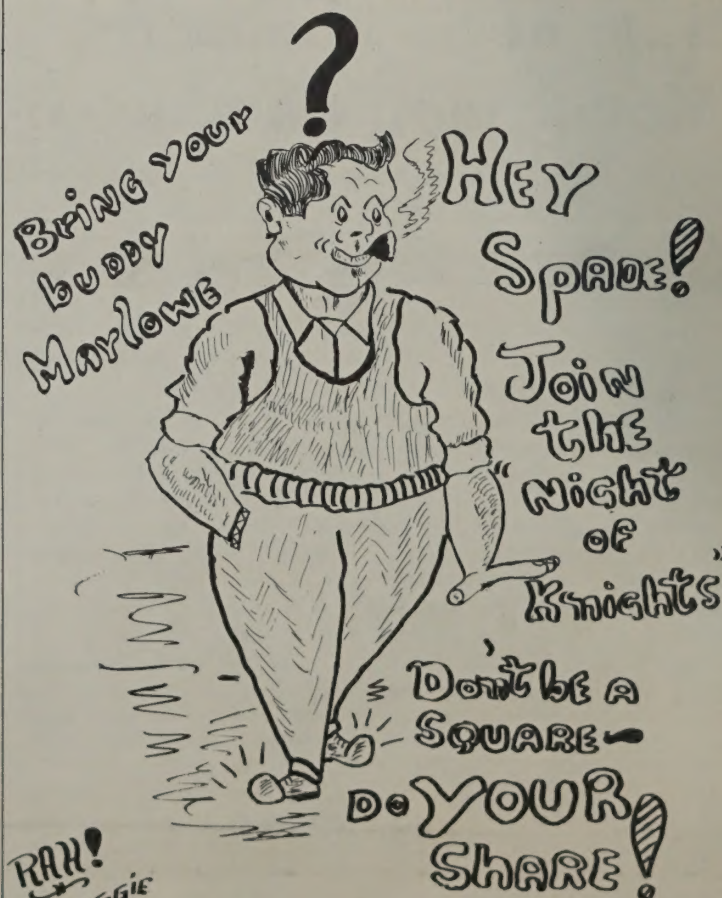 ?
Bring your
buddy
Marlowe
Hey
Spade!
Join
the
"Night
of
Knights"
Don't be a
square-
Do YOUR
Share!
RAH!